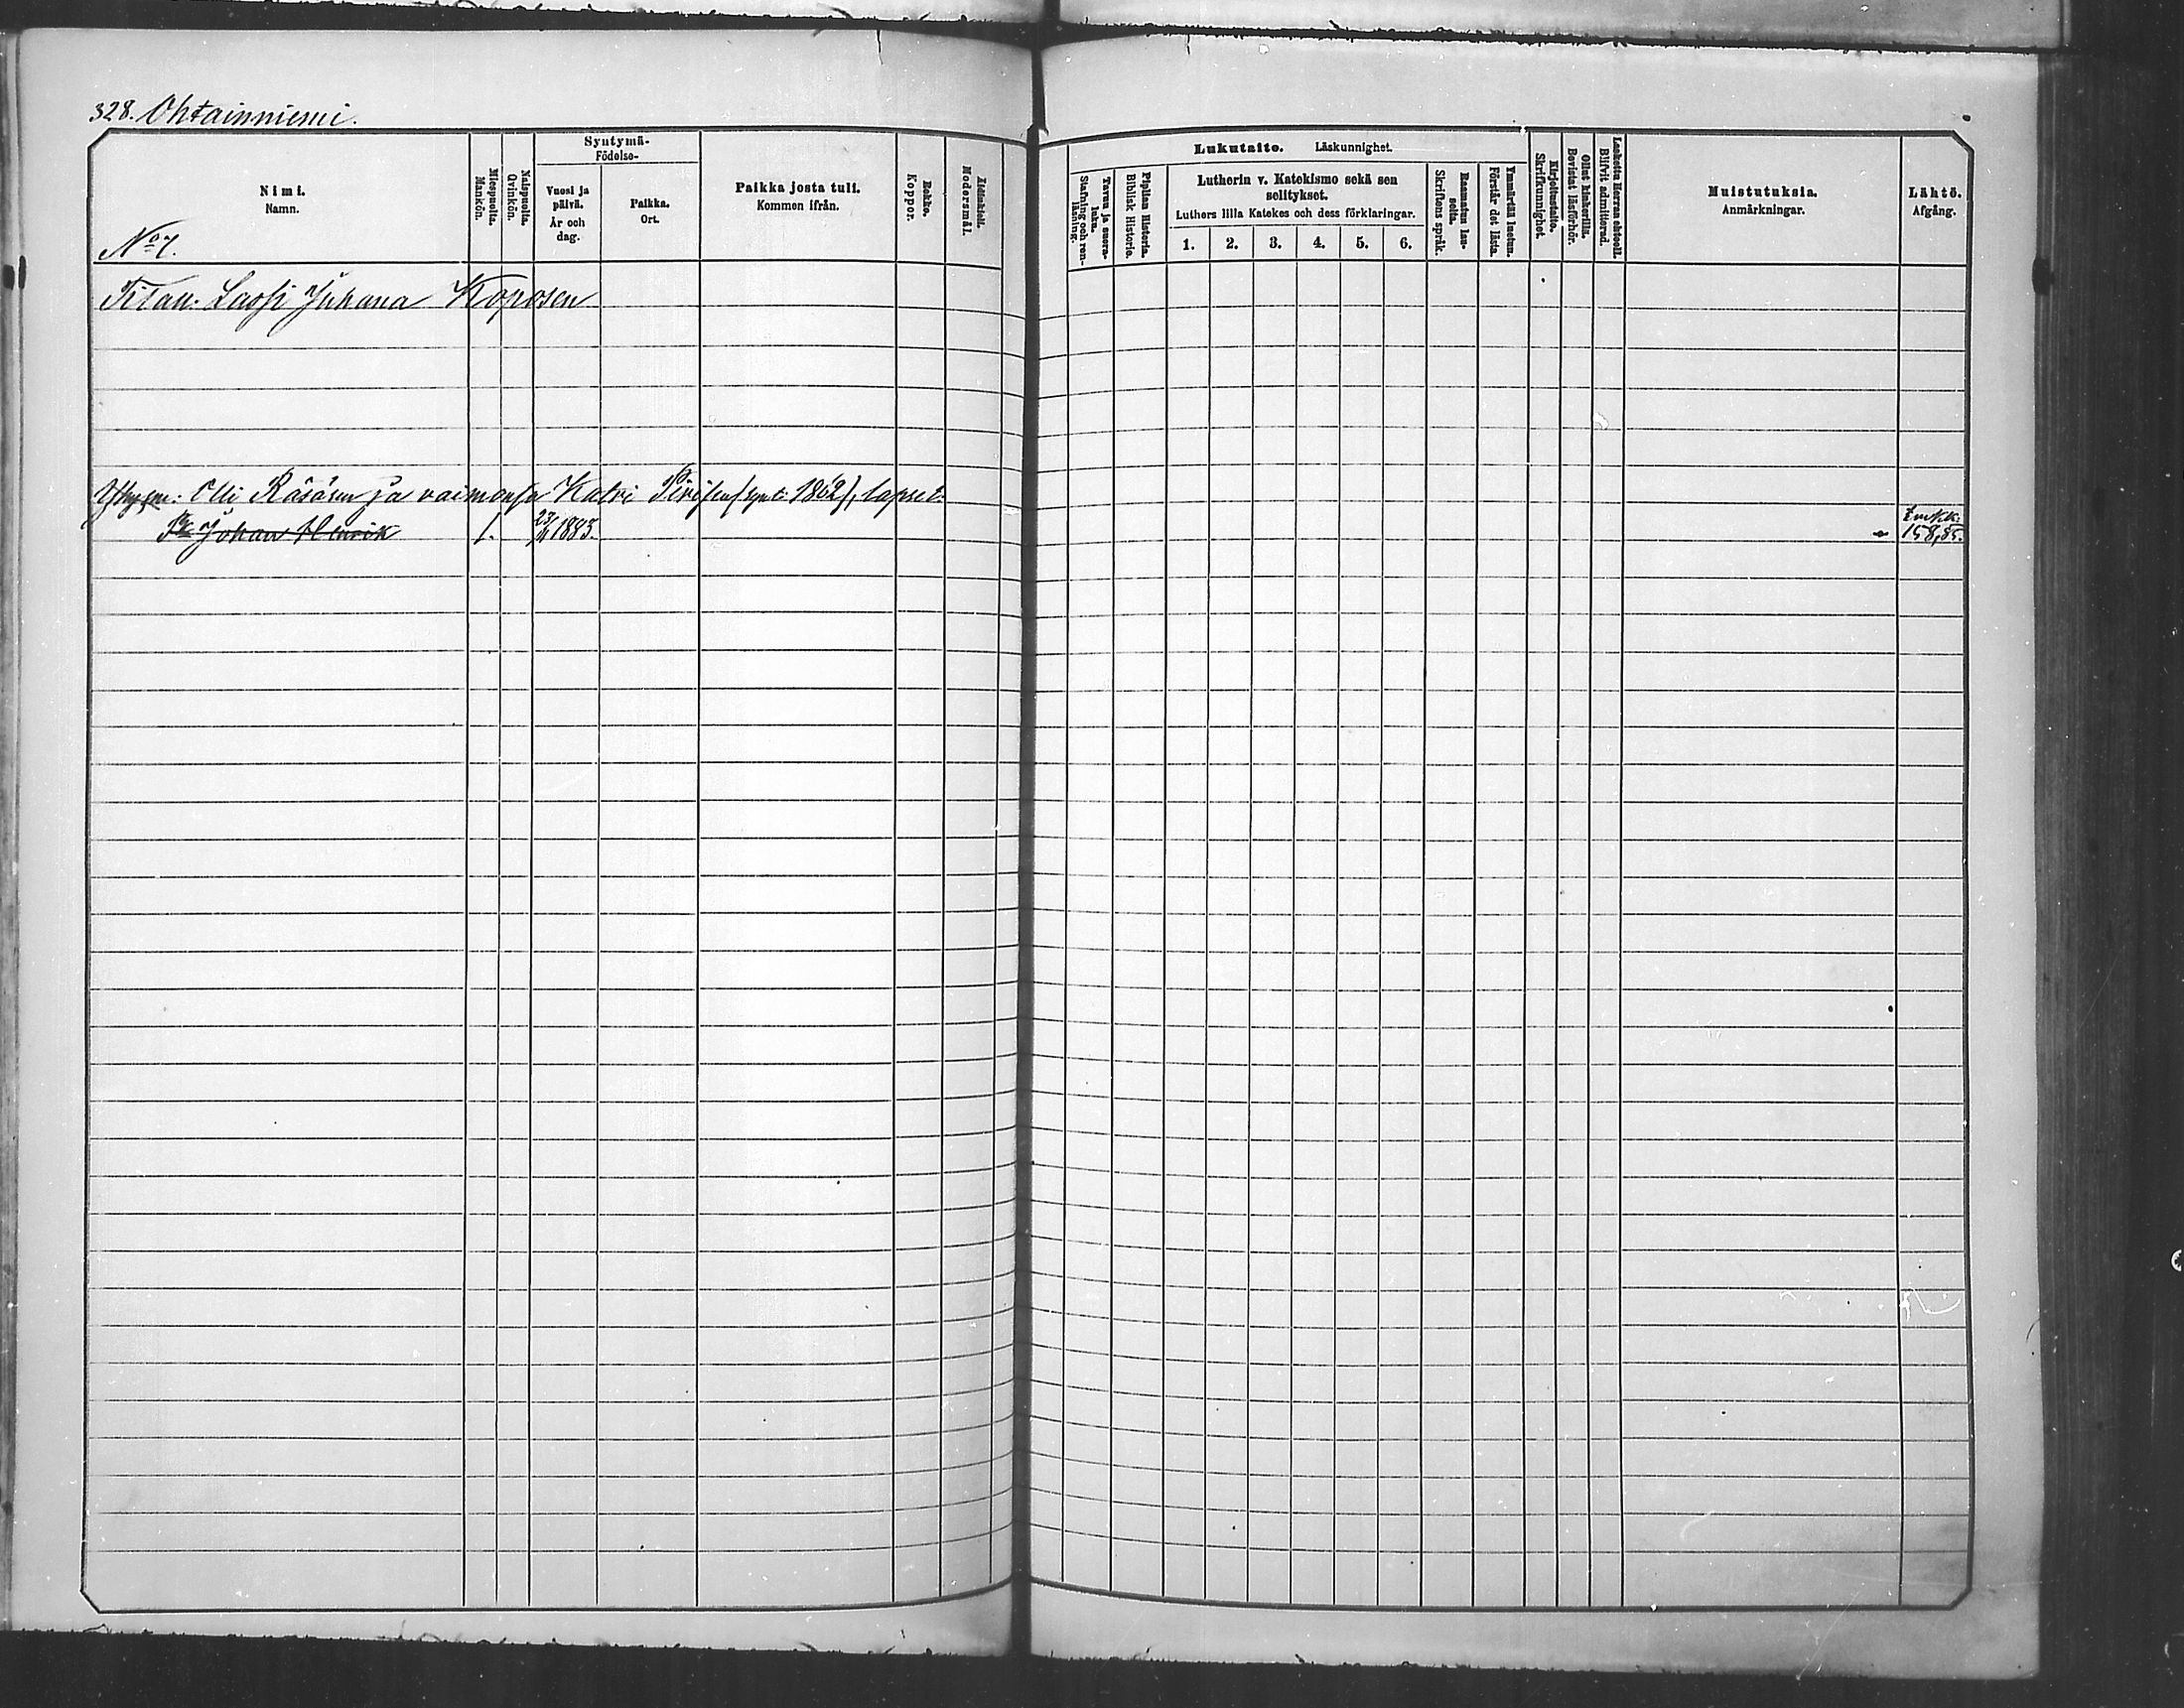 328. Ohtainniemi.
Nimi.
Namn.
Miespuolta.
Mankön.
Naispuolta.
Qvinkön.
Syntymä-
Födelse-
Vuosi ja
päivä.
År och
dag.
Paikka.
Ort.
Paikka josta tuli.
Kommen ifrån.
Rokko.
Koppor.
Äidinkieli.
Modersmål.
Lukutaito. Läskunnighet.
Tavuu ja suora-
luku.
Stafning och ren-
läsning.
Piplian Historia.
Biblisk Historie.
Lutherin v. Katekismo sekä sen
selitykset.
Luthers lilla Katekes och dess förklaringar.
1. 2. 3. 4. 5. 6.
Raamatun lau-
seita.
Skriftens språk.
Ymmärtää luetun.
Förstår det lästa.
Kirjoitustaito.
Skrifkunnighet.
Ollut kinkerillä.
Bevistat läsförhör.
Laskettu Herran ehtooll.
Blifvit admitterad.
Muistutuksia.
Anmärkningar.
Lähtö.
Afgång.
No 7.
Tilan. Lassi Juhana Koposen
Olli Räsäsen ja vaimonsa Katri 1862), lapset:
Pk Johan Henrik 1. 1883.
158, 85.